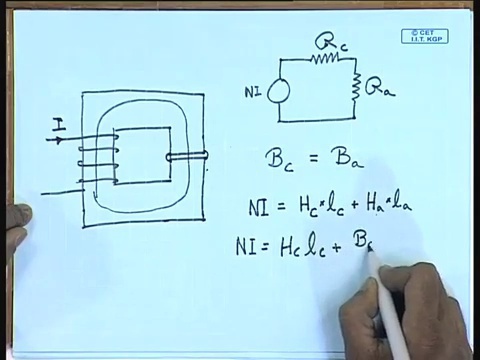 © CET
I.I.T. KGP
R_c
I
NI
R_a
B_c = B_a
NI = H_c * l_c + H_a * l_a
NI = H_c l_c +